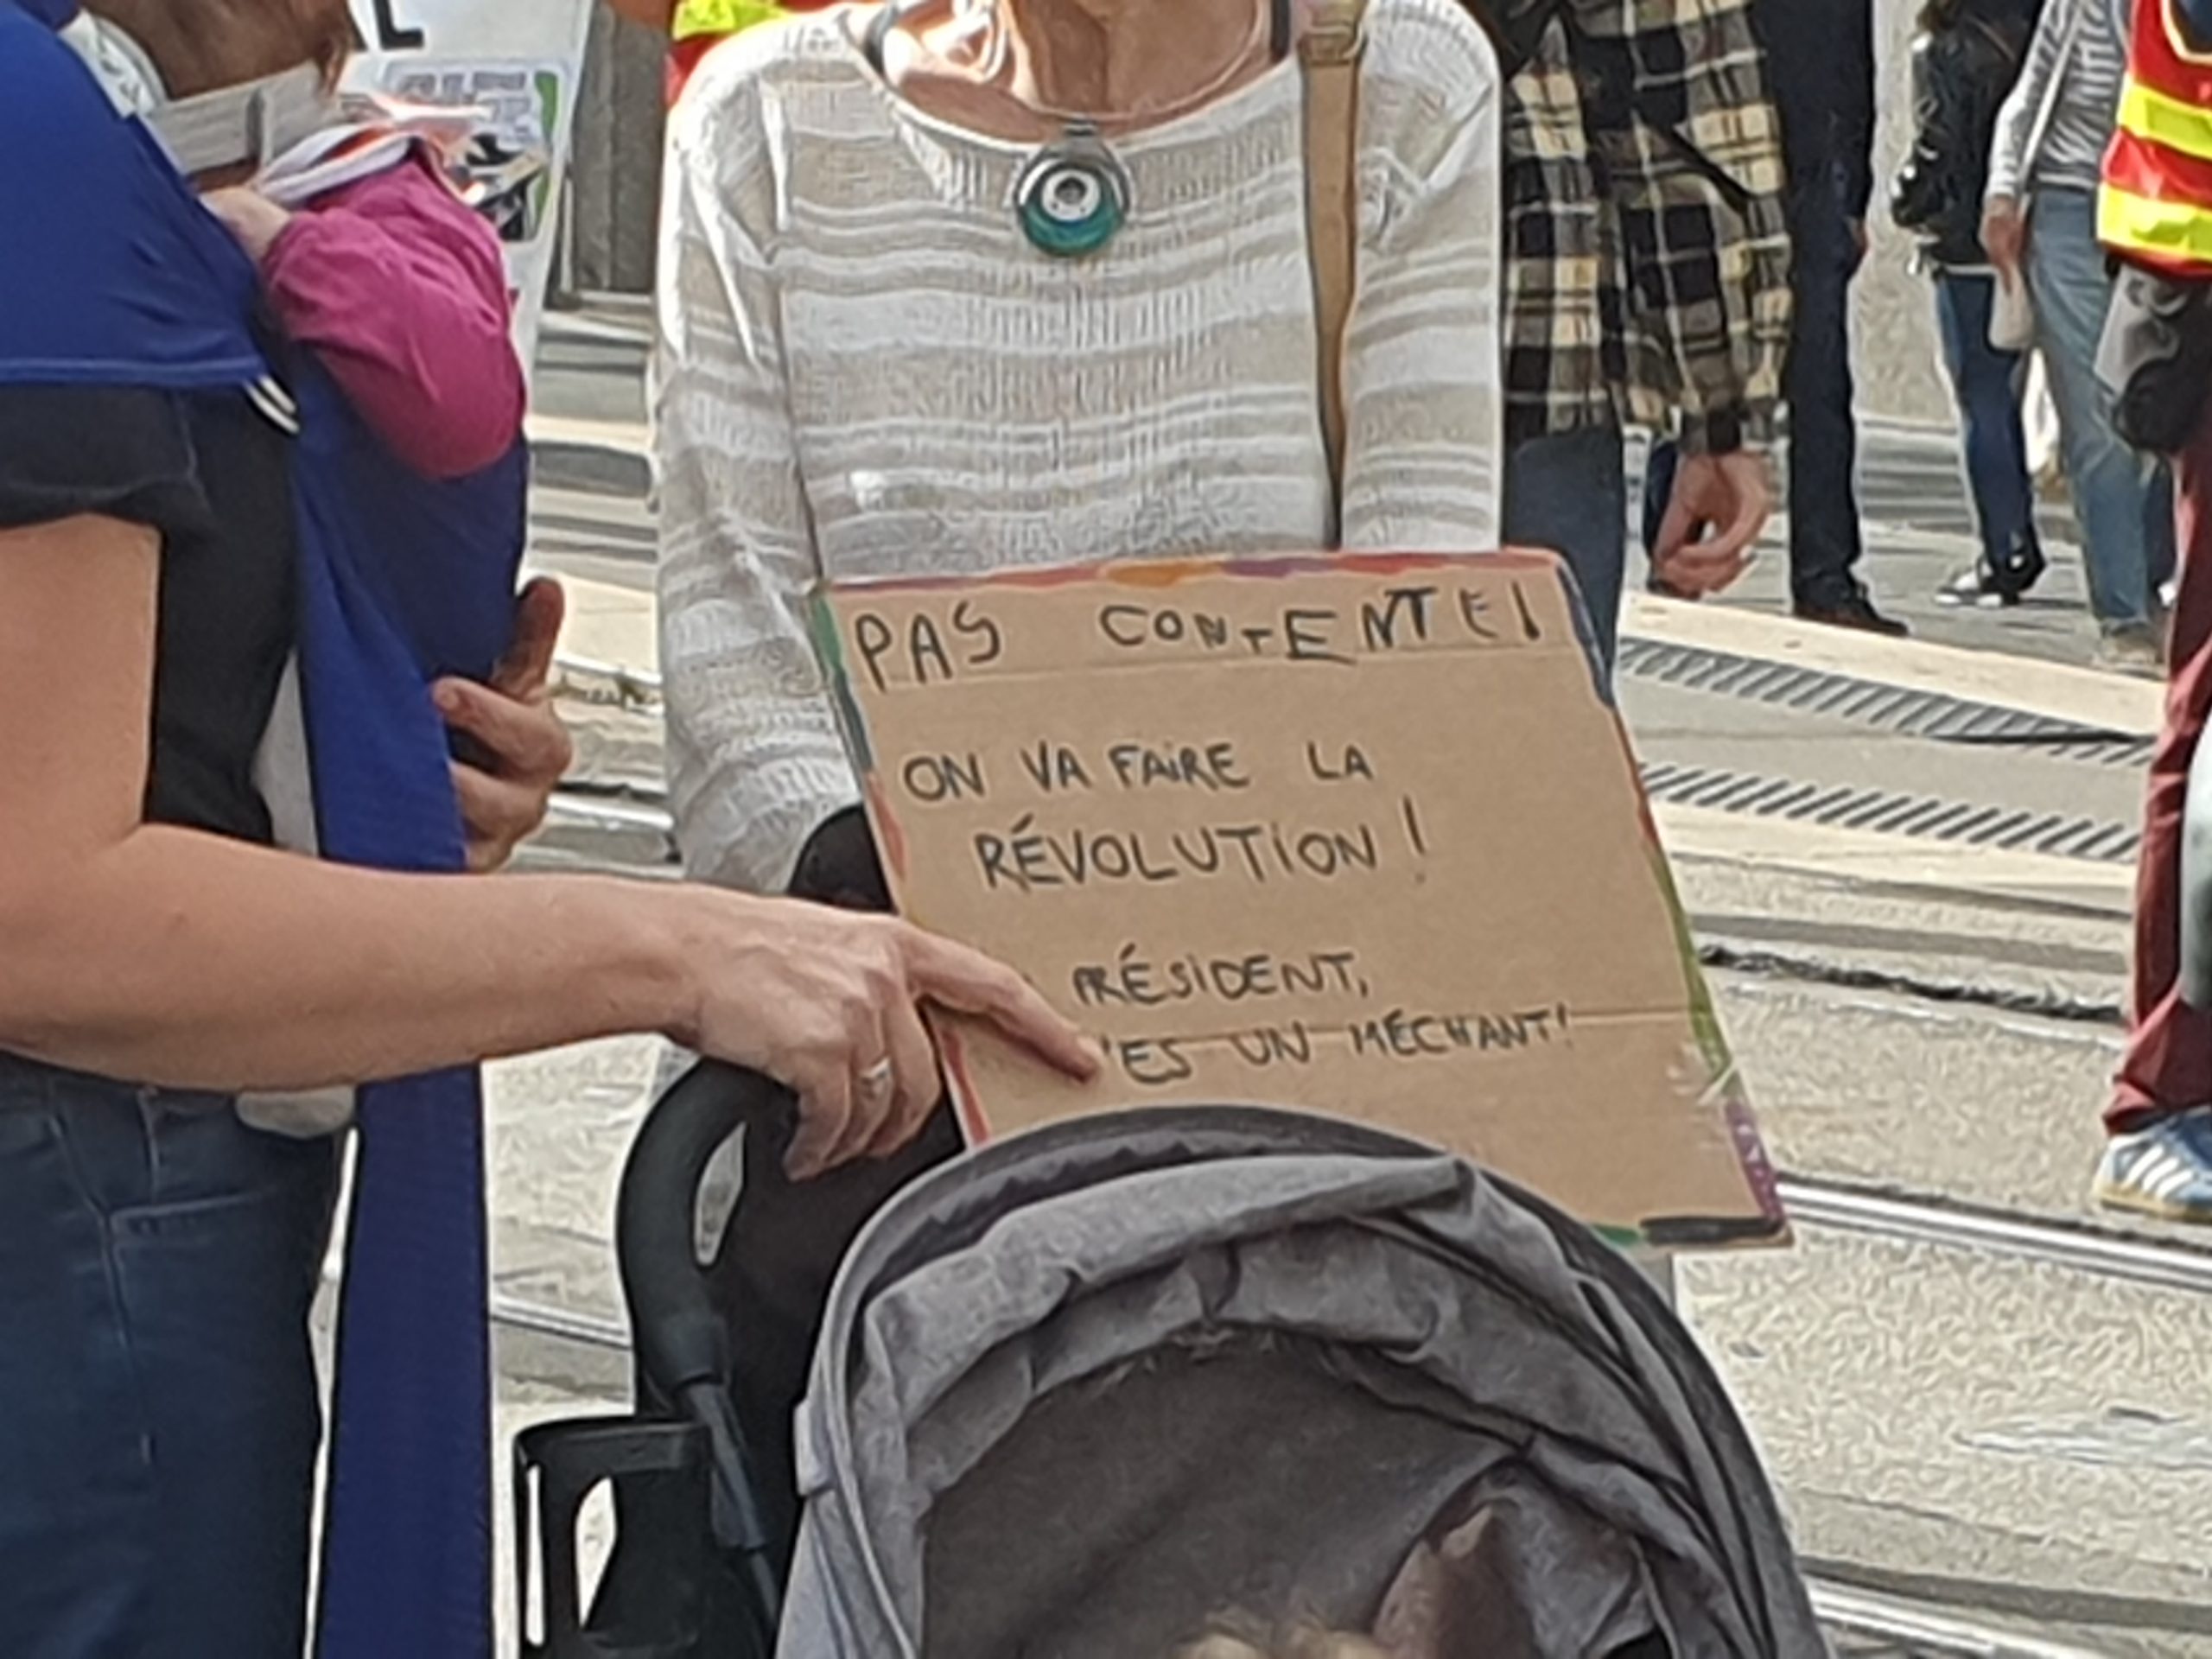 PAS CONTENTE!
ON VA FAIRE LA
RÉVOLUTION !
PRÉSIDENT,
'ES UN MÉCHANT!
L